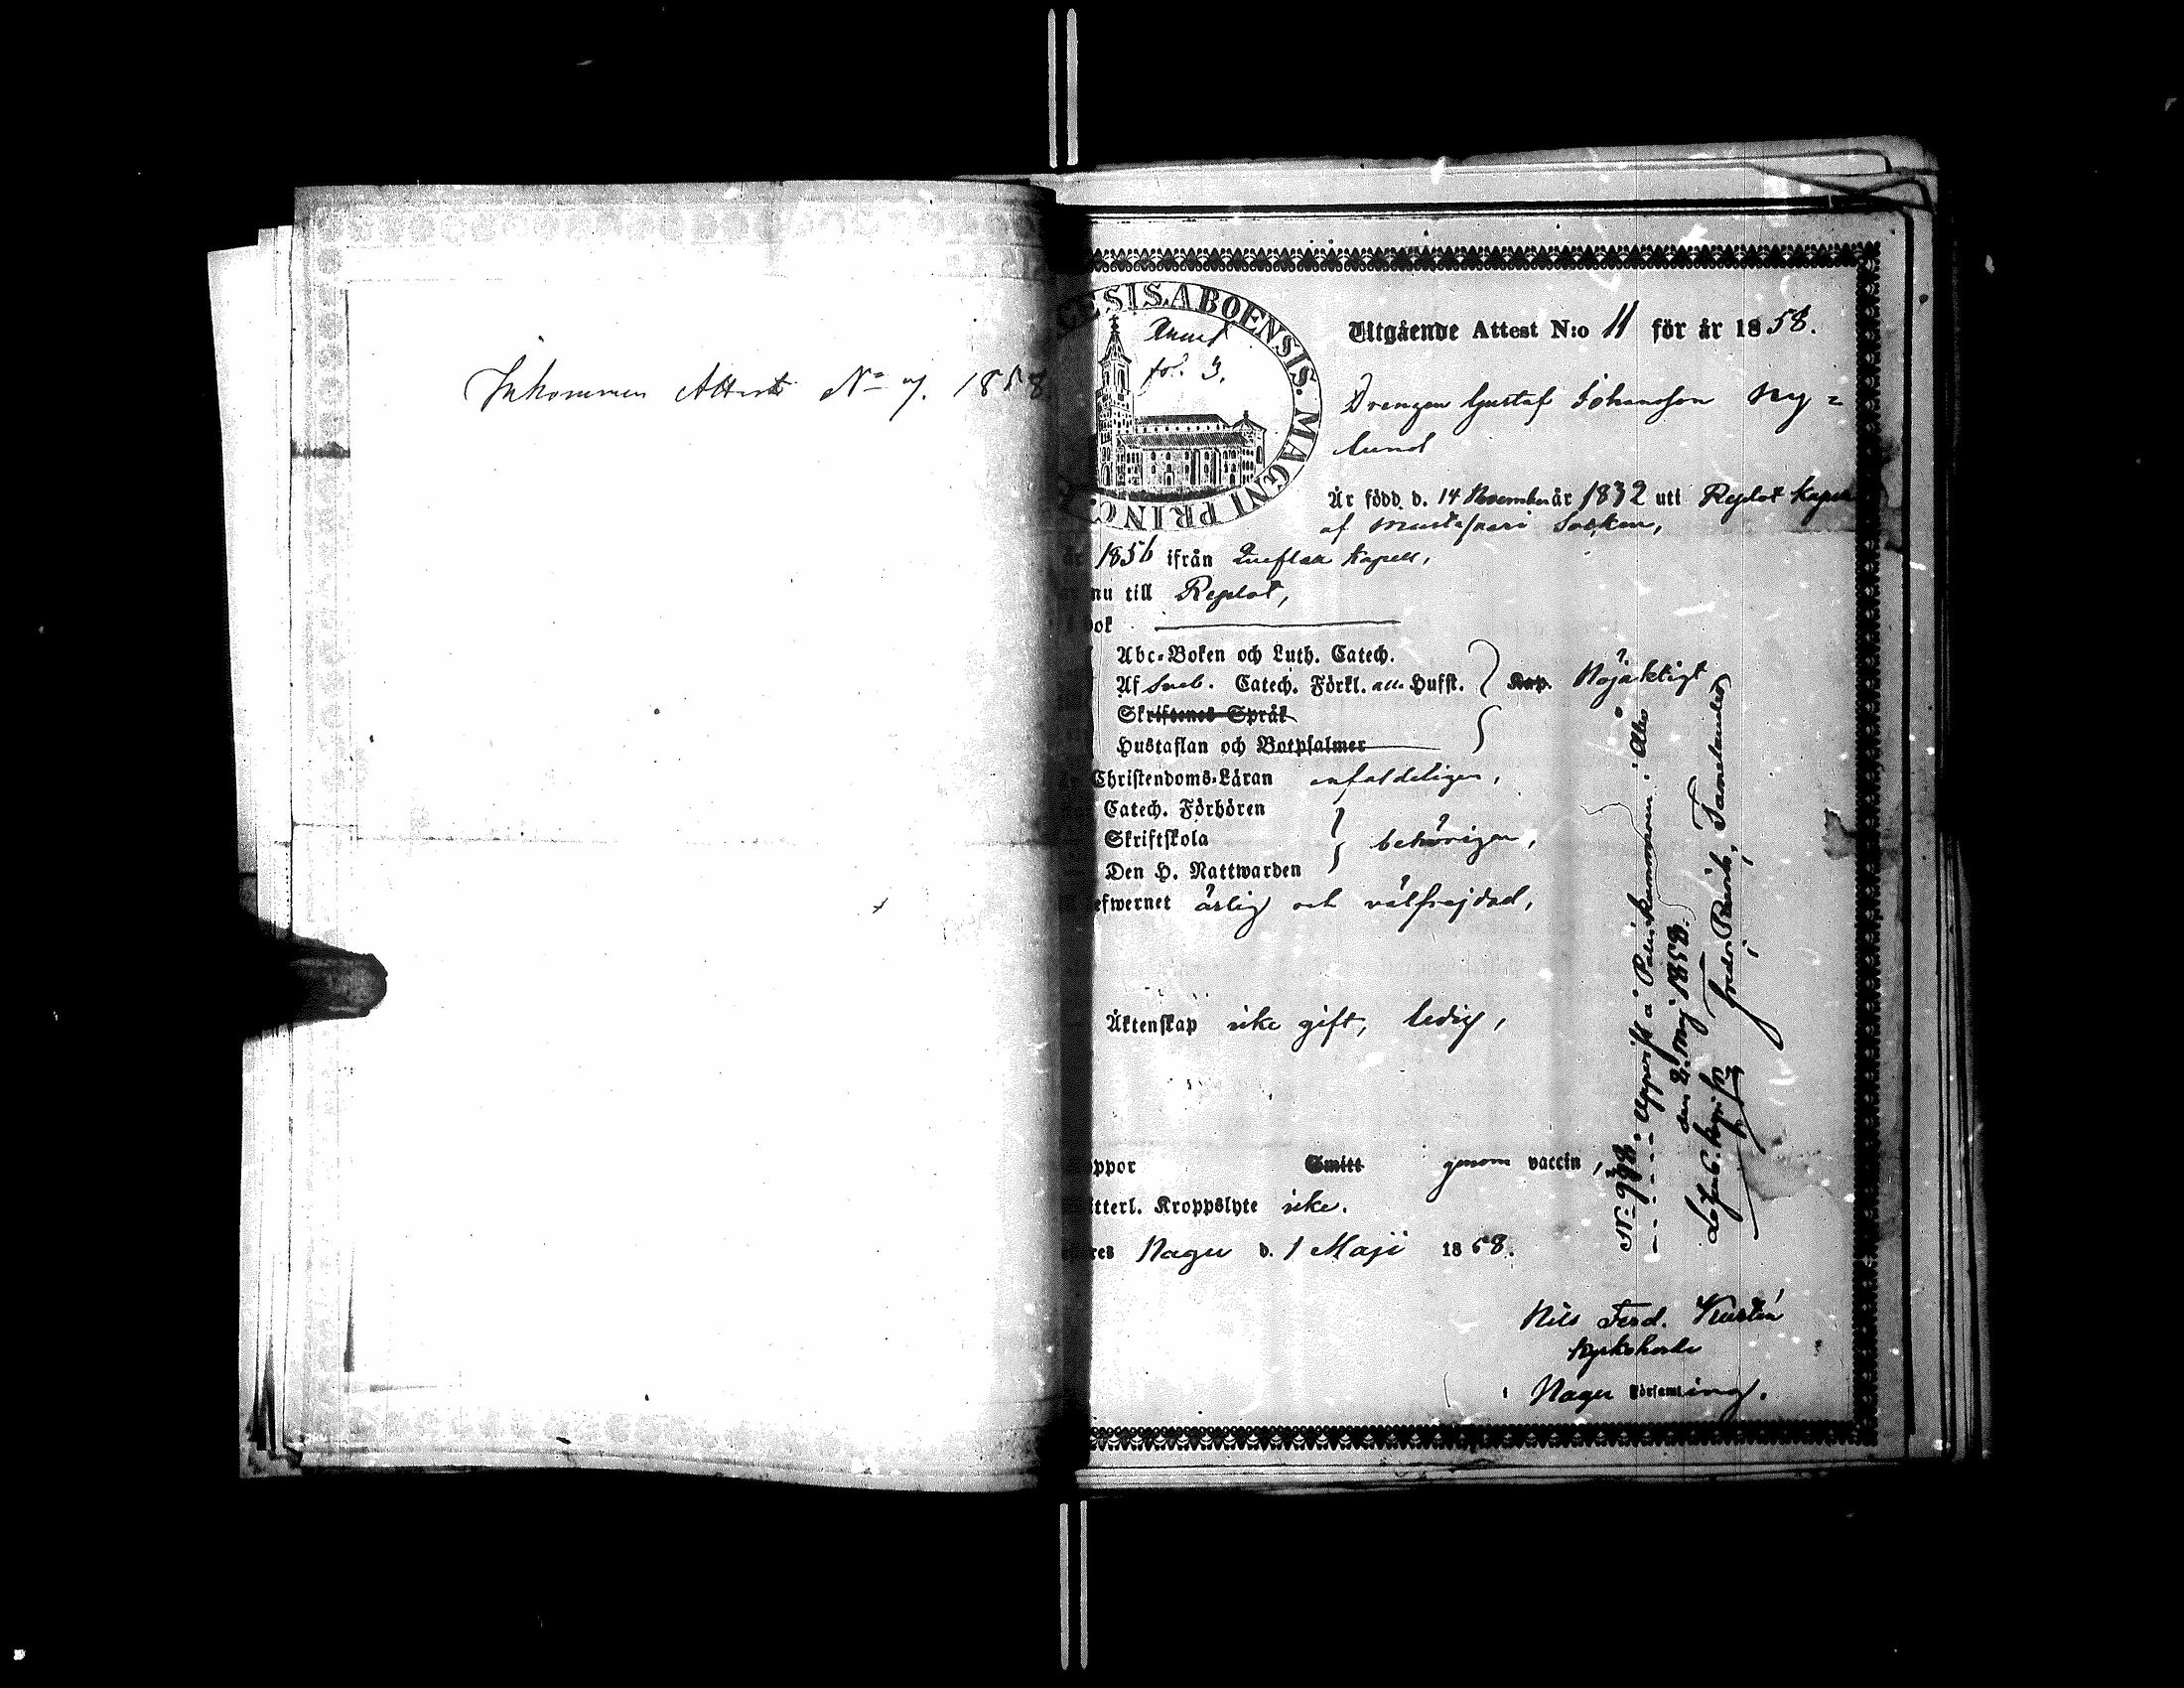 Inkommen Attest N:o 7. 1858
CESIS. ABOENSIS. MAGNI PRINC
fol. 3.
Utgående Attest N:o 11 för år 1858.
Drengen Gustaf Johansson Ny=
lund
Är född d. 14 November år 1832 uti Replot Kapell
af Mustasaari Socken,
år 1856 ifrån Queflax Kapell,
nu till Replot,
bok
Abc-Boken och Luth. Catech.
Af Sveb. Catech. Förkl. alla Hufst. Nöjaktigt
Skriftenes Språk
Hustaflan och Botpsalmer
Christendoms-Läran enfaldeligen,
Catech. Förhören
Skriftskola behörigen,
Den H. Nattwarden
efwernet ärlig och välfrejdad,
Äktenskap icke gift, ledig,
oppor Smitt genom vaccin,
itterl. Kroppslyte icke.
res Nagu d. 1 Maji 1858.
Nils Ferd. Kustén
Kyrkoherde
i Nagu Församling.
Uppvist å Poliskammaren i Åbo
den 2 Maj 1858.